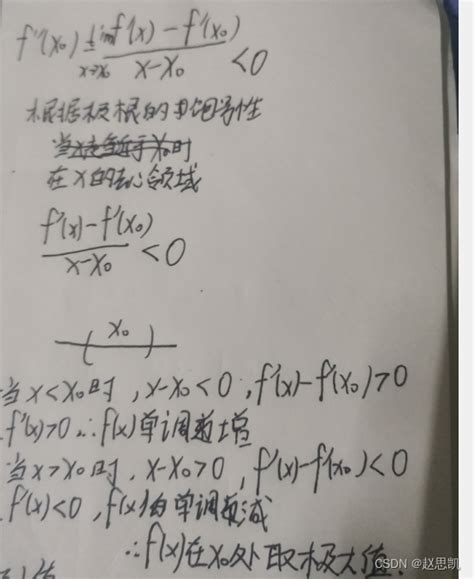 f''(x₀) = lim x→x₀ f'(x) - f'(x₀) / x-x₀ < 0
根据极限的局部保号性
当x趋近于x₀时
在x的去心领域
f'(x) - f'(x₀) / x-x₀ < 0
( x₀ )
当x<x₀时, x-x₀<0, f'(x)-f'(x₀)>0
f'(x)>0 ∴ f(x)单调递增
当x>x₀时, x-x₀>0, f'(x)-f'(x₀)<0
f'(x)<0, f(x)的单调递减
∴ f(x)在x₀处取极大值.
CSDN @赵思凯